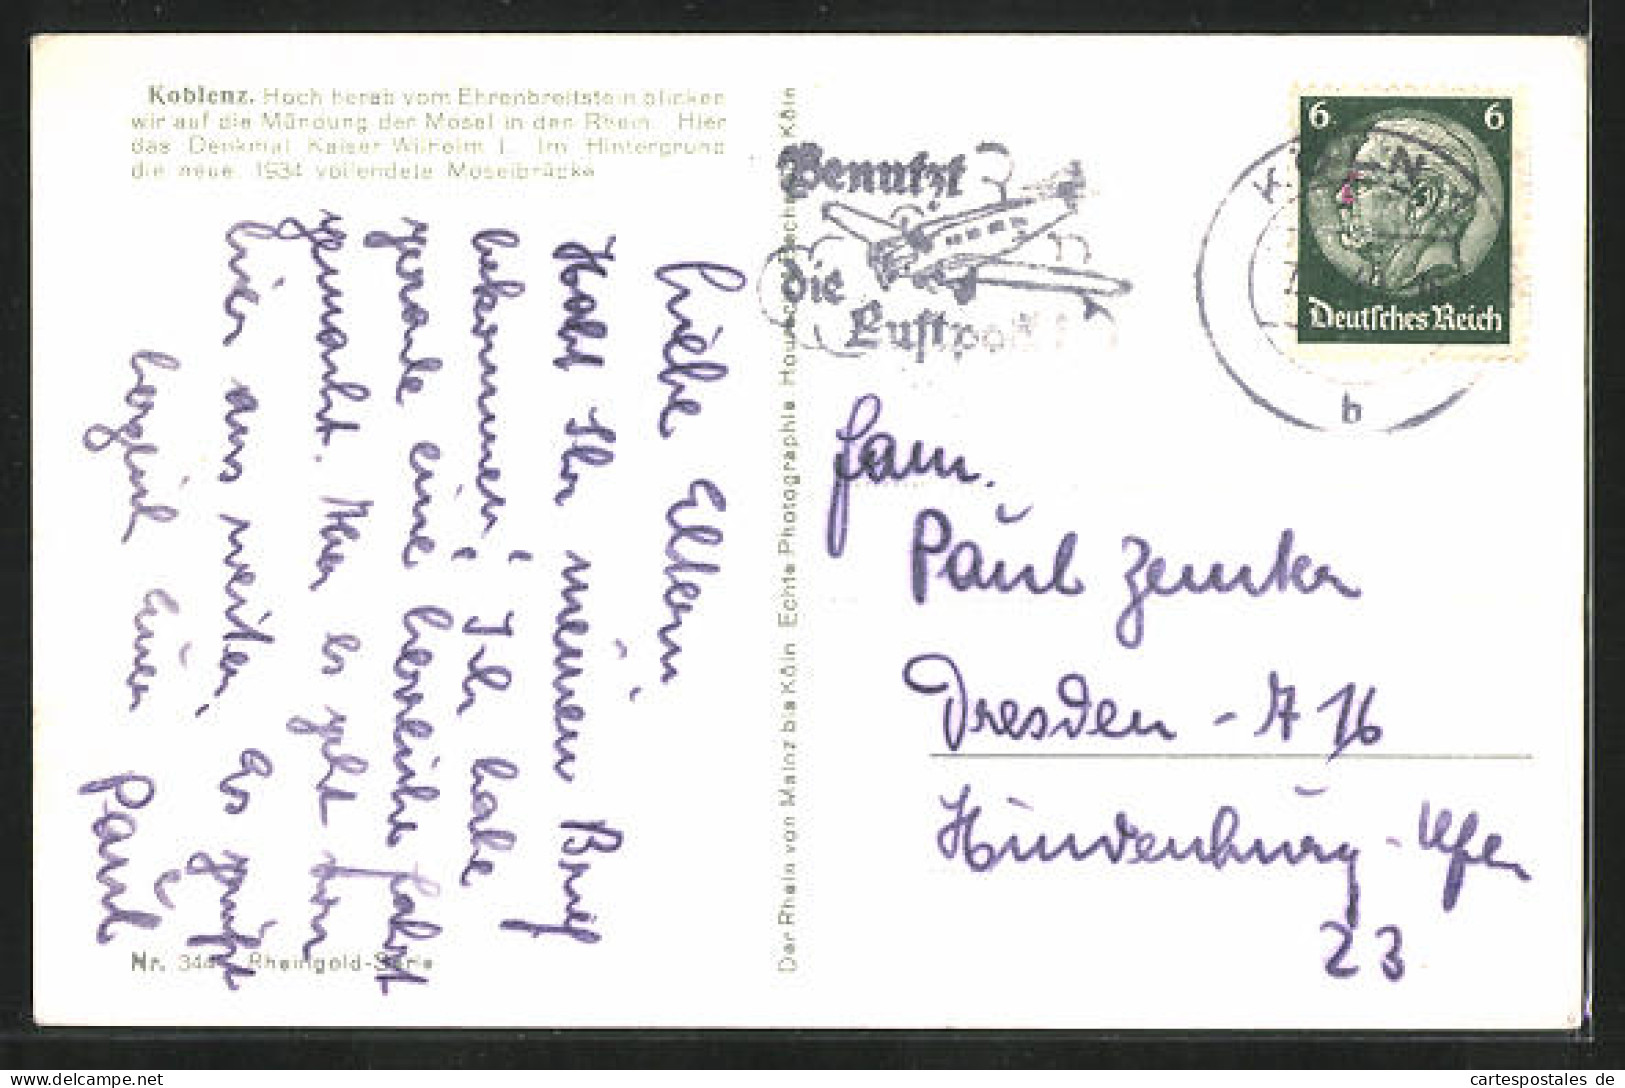 Koblenz. Hoch herab vom Ehrenbreitstein blicken
wir auf die Mündung der Mosel in den Rhein. Hier
das Denkmal Kaiser Wilhelm I. Im Hintergrund
die neue, 1934 vollendete Moselbrücke
Liebe Eltern!
Habt Ihr meinen Brief
bekommen? Ich habe
gerade eine herrliche Fahrt
gemacht. Mir es geht von
hier aus weiter. Es grüßt
herzlich Euer
Paul
Nr. 344 Rheingold-Serie
Der Rhein von Mainz bis Köln Echte Photographie Köln
Benutzt
die
Luftpost
6 6
Deutsches Reich
b
Fam.
Paul Zemker
Dresden - A 16
Hindenburg-Ufer
23
cartespostales de